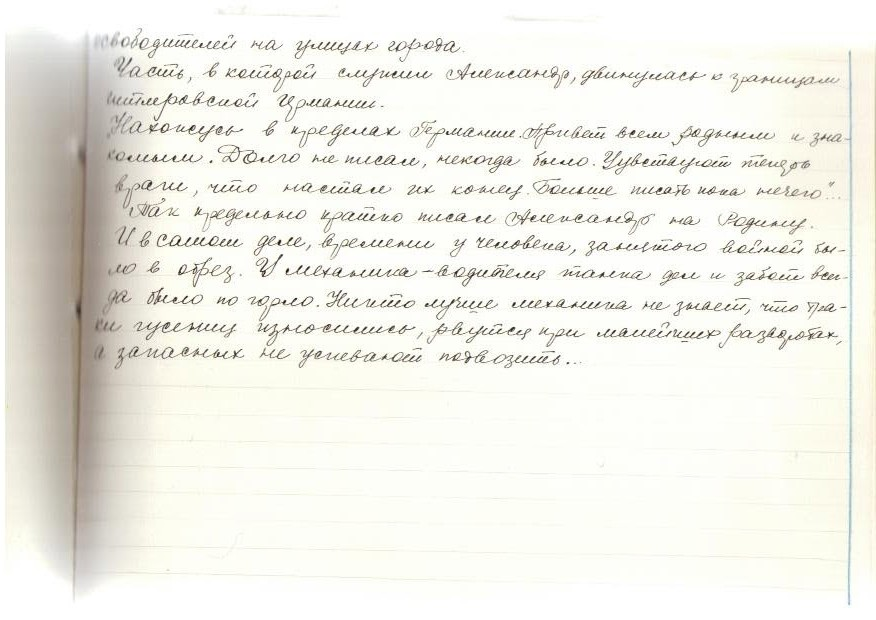 освободителей на улицах города.
Часть, в которой служил Александр, двинулась к границам
гитлеровской Германии.
„Нахожусь в пределах Германии. Привет всем родным и зна-
комым. Долго не писал, некогда было. Чувствуют теперь
враги, что настал их конец. Больше писать пока нечего"...
Так предельно кратко писал Александр на Родину.
И в самом деле, времени у человека, занятого войной бы-
ло в обрез. У механика-водителя танка дел и забот все-
да было по горло. Никто лучше механика не знает, что тра-
ки гусениц износились, рвутся при малейших разворотах,
а запасных не успевают подвозить...